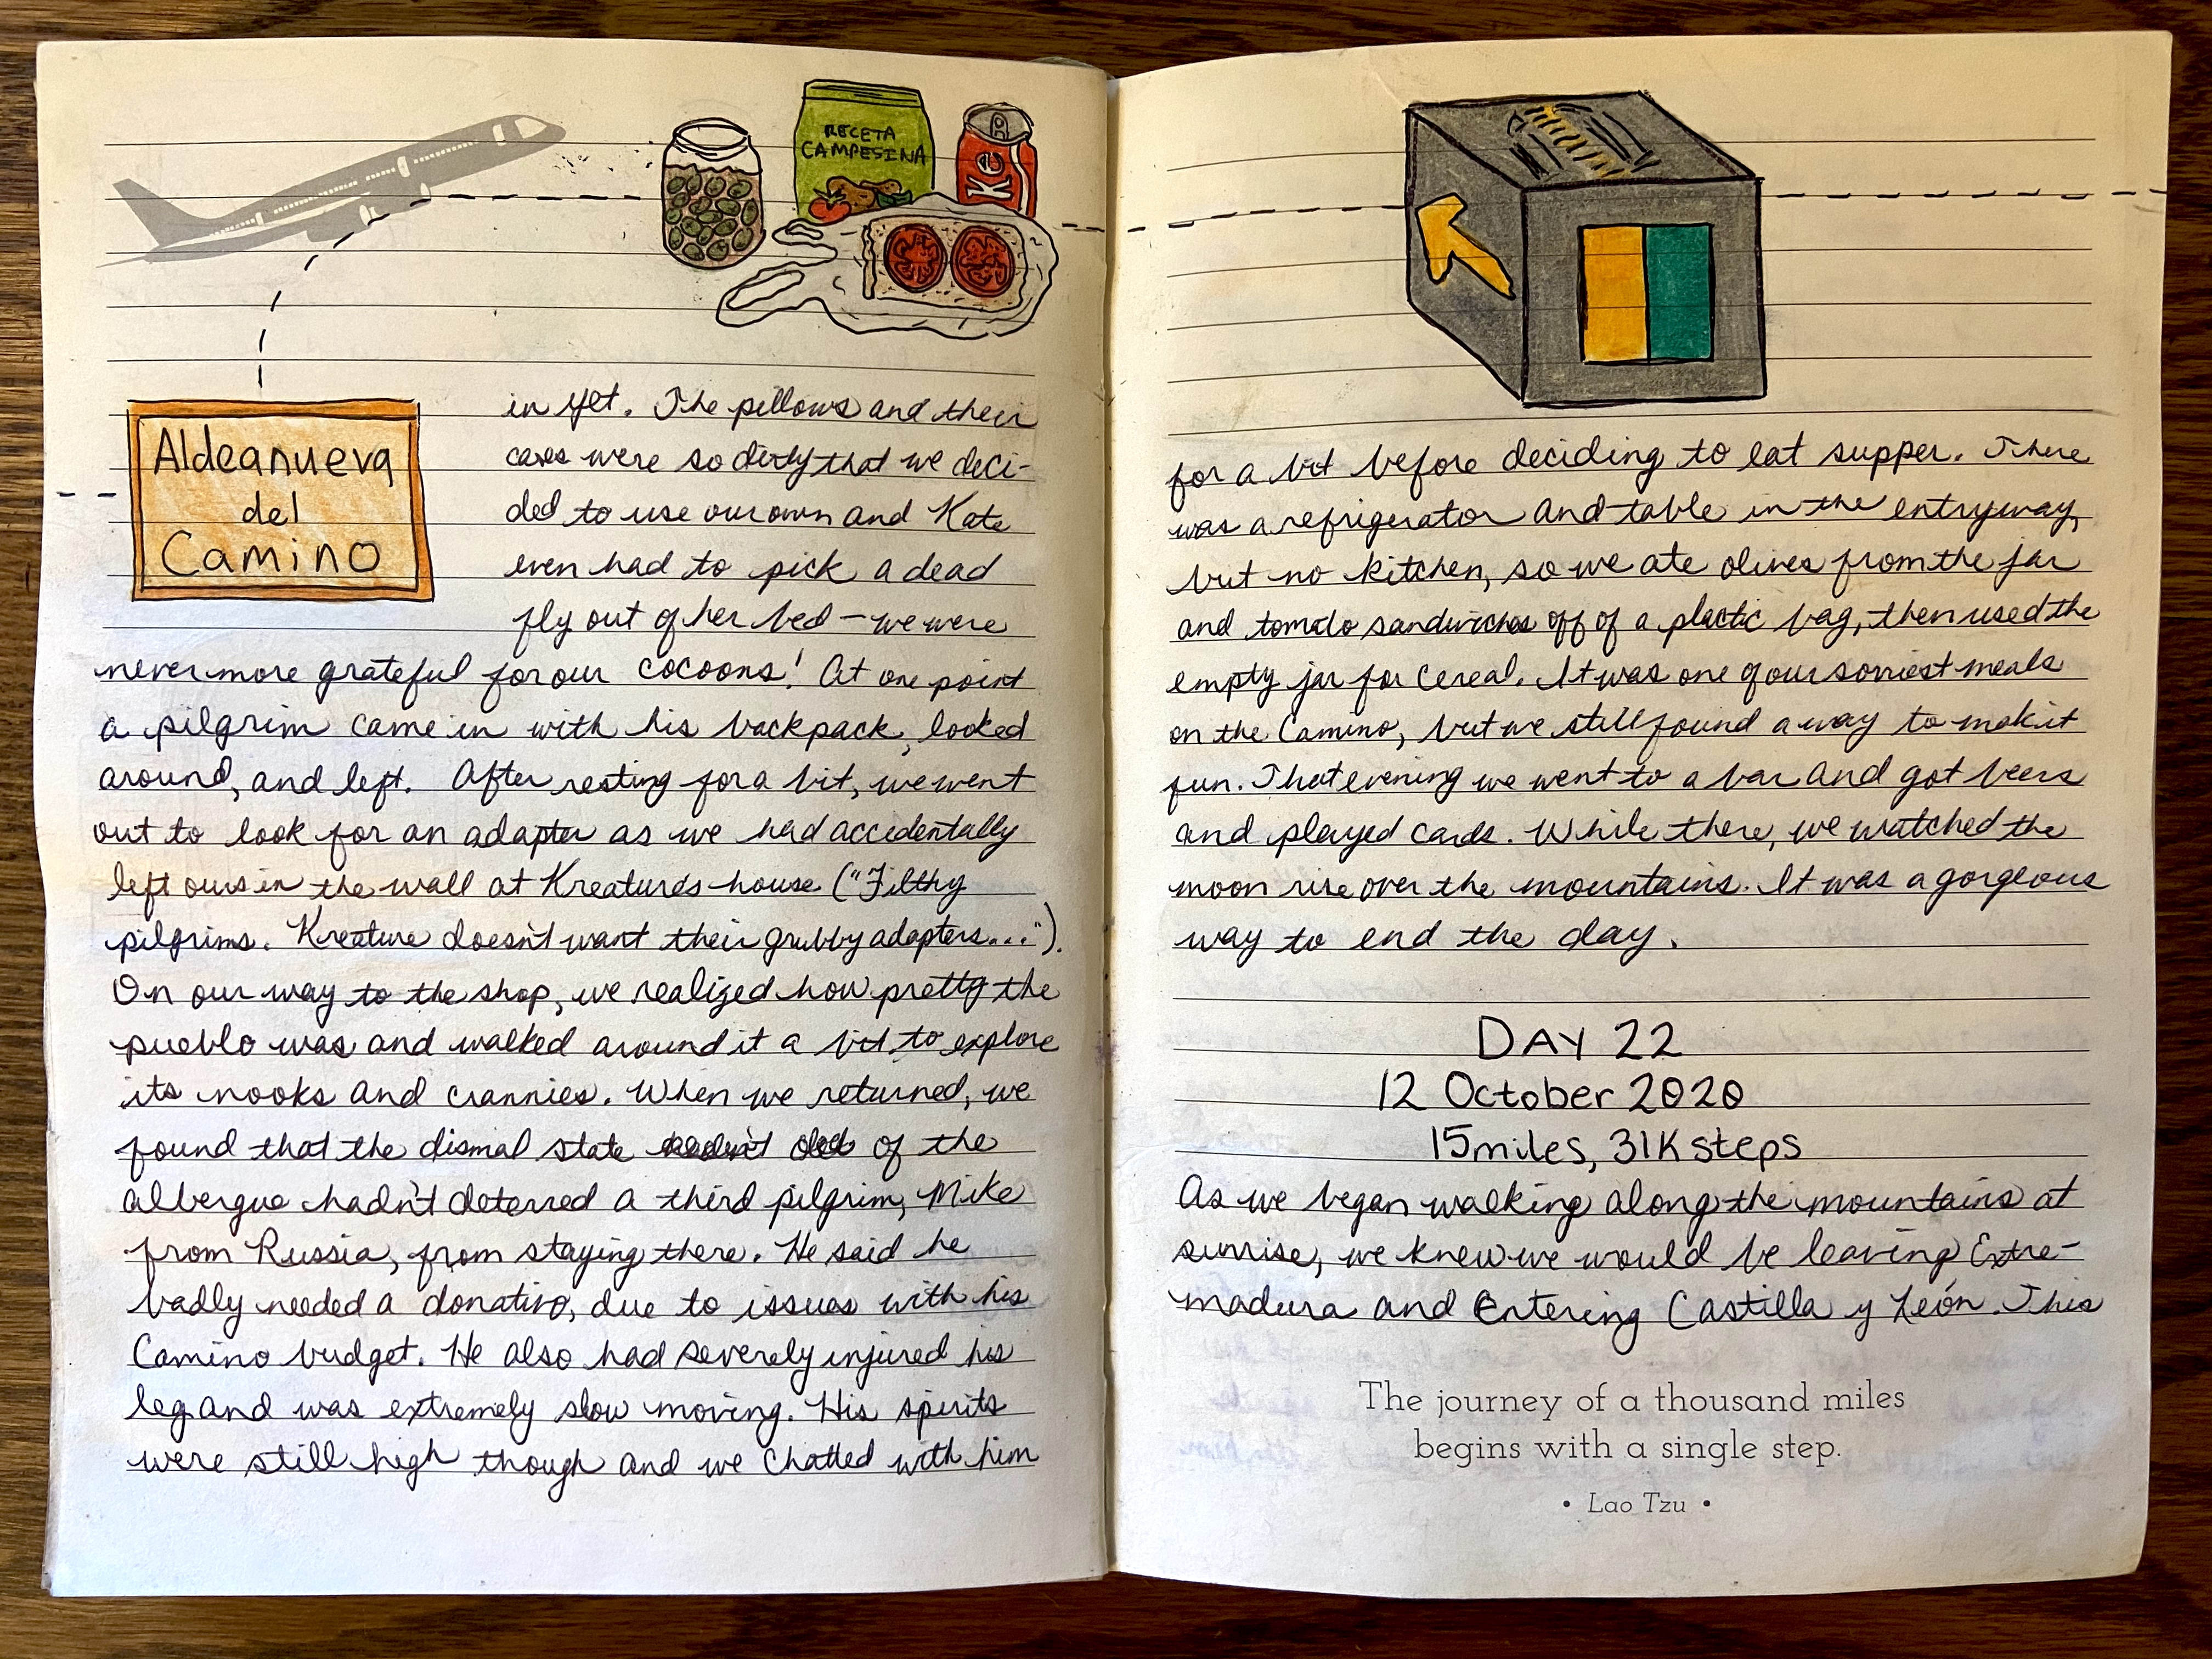 RECETA
CAMPESINA
Ke
Aldeanueva
del
Camino
in yet. The pillows and their
cases were so dirty that we deci-
ded to use our own and Kate
even had to pick a dead
fly out of her bed – we were
never more grateful for our cocoons! At one point
a pilgrim came in with his backpack, looked
around, and left. After resting for a bit, we went
out to look for an adapter as we had accidentally
left ours in the wall at Kreature's house ("Filthy
pilgrims. Kreature doesn't want their grubby adapters...").
On our way to the shop, we realized how pretty the
pueblo was and walked around it a bit to explore
its nooks and crannies. When we returned, we
found that the dismal state of the
albergue hadn't deterred a third pilgrim, Mike
from Russia, from staying there. He said he
badly needed a donativo, due to issues with his
Camino budget. He also had severely injured his
leg and was extremely slow moving. His spirits
were still high though and we chatted with him
for a bit before deciding to eat supper. There
was a refrigerator and table in the entryway,
but no kitchen, so we ate olives from the jar
and tomato sandwiches off of a plastic bag, then used the
empty jar for cereal. It was one of our sorriest meals
on the Camino, but we still found a way to make it
fun. That evening we went to a bar and got beers
and played cards. While there, we watched the
moon rise over the mountains. It was a gorgeous
way to end the day.
DAY 22
12 October 2020
15 miles, 31K steps
As we began walking along the mountains at
sunrise, we knew we would be leaving Extre-
madura and entering Castilla y León. This
The journey of a thousand miles
begins with a single step.
• Lao Tzu •